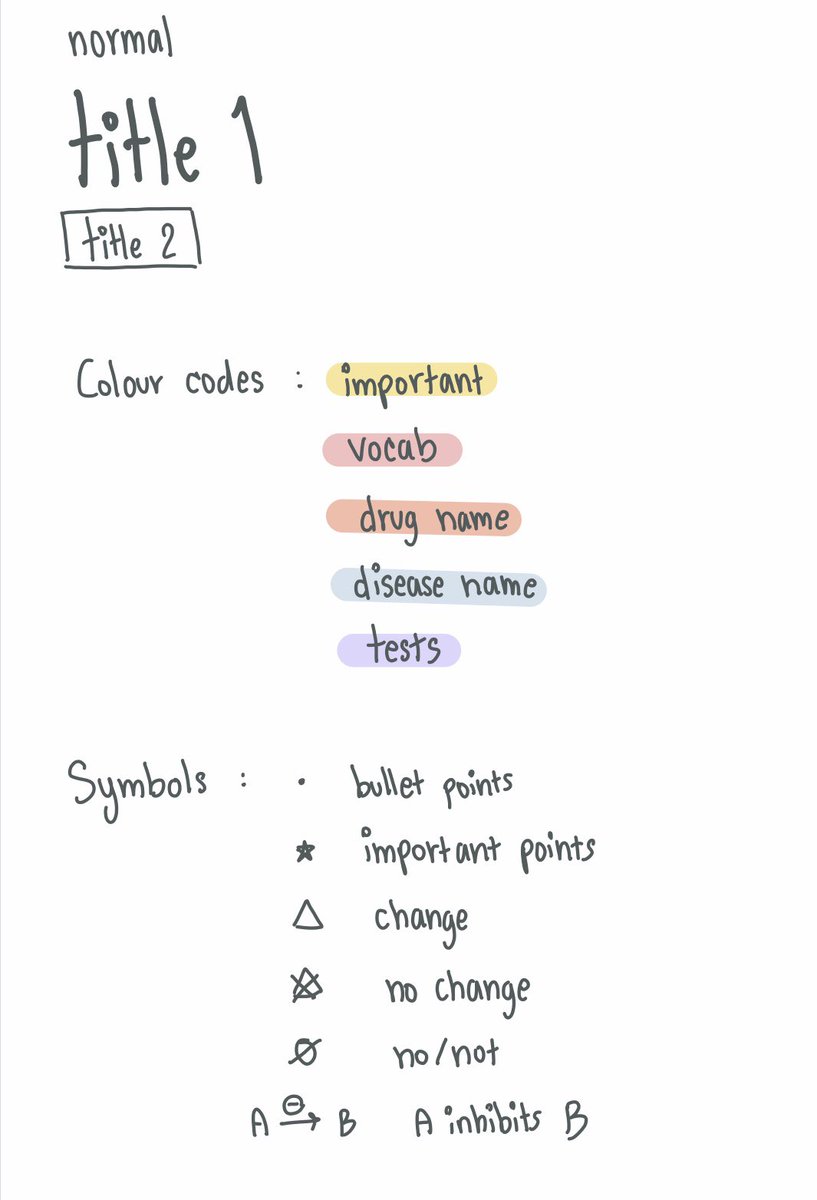 normal
title 1
title 2
Colour codes : important
vocab
drug name
disease name
tests
Symbols : • bullet points
★ important points
△ change
no change
∅ no/not
A ⊖→ B A inhibits B